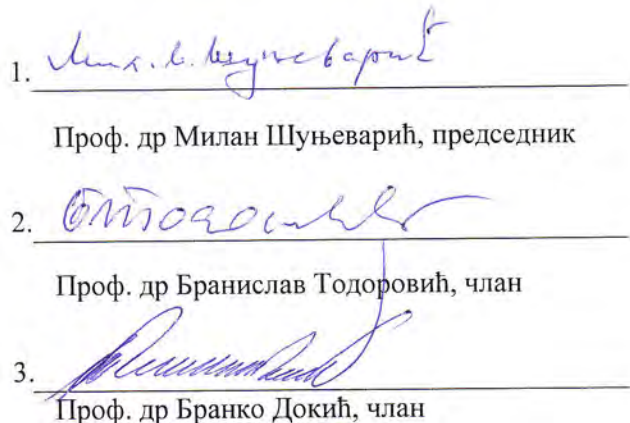 1.
Проф. др Милан Шуњеварић, председник
2.
Проф. др Бранислав Тодоровић, члан
3.
Проф. др Бранко Докић, члан